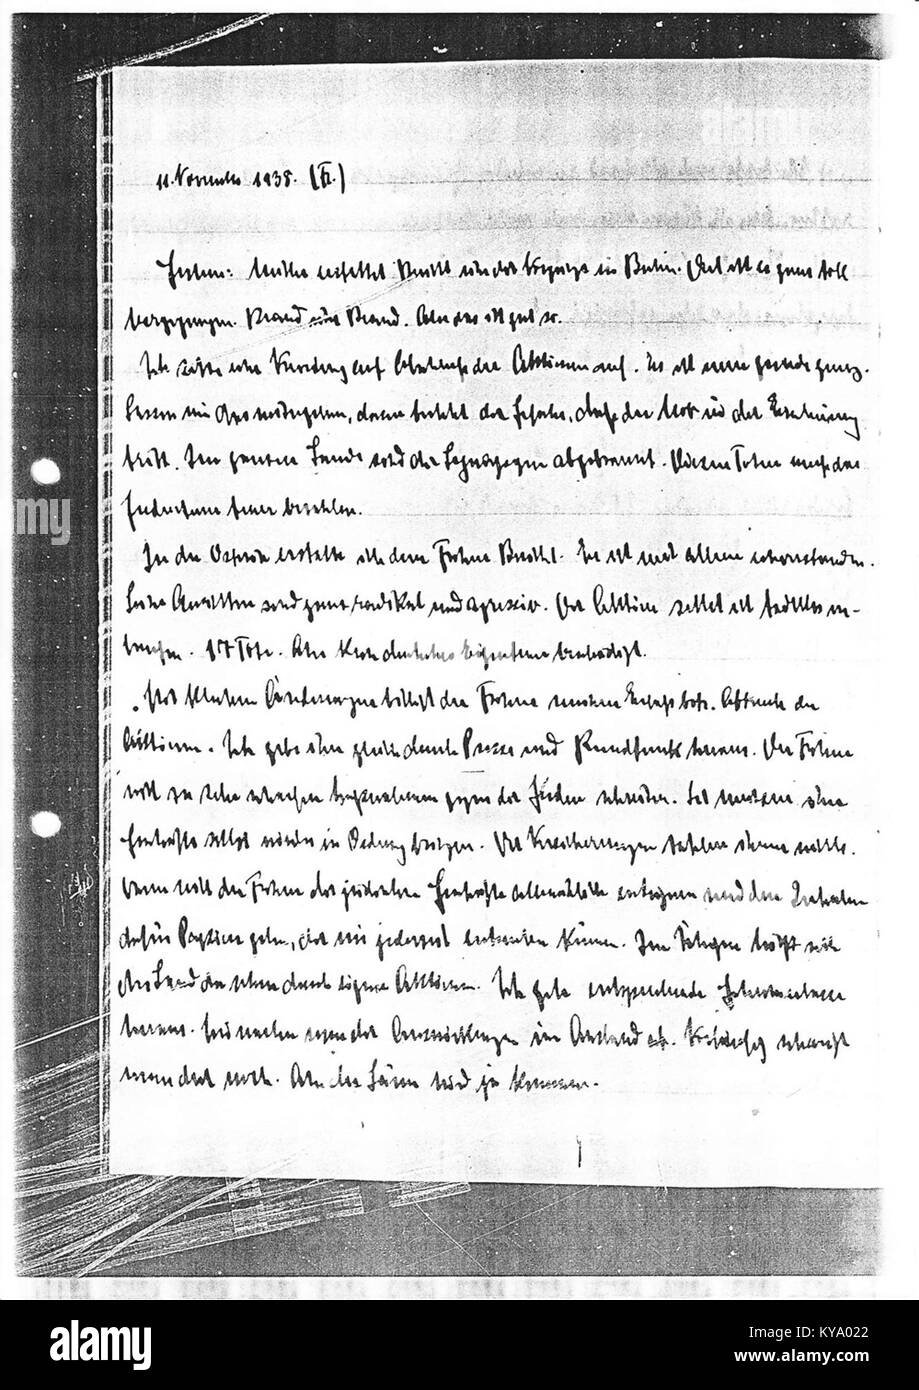 11. November 1938. (Fr.)
Gestern: Müller erstattet Bericht über die Vorgänge in Berlin. Dort ist es ganz toll
vorgegangen. Brand über Brand. Aber das ist gut so.
Ich setze eine Verordnung auf Abschluß der Aktionen auf. Es ist nun gerade genug.
Lassen wir das weitergehen, dann besteht die Gefahr, daß der Mob in die Erscheinung
tritt. Im ganzen Lande sind die Synagogen abgebrannt. Diesen Toten muß das
Judentum teuer bezahlen.
In der Osteria erstatte ich dem Führer Bericht. Er ist mit allem einverstanden.
Seine Ansichten sind ganz radikal und aggressiv. Die Aktion selbst ist tadellos ver-
laufen. 17 Tote. Aber kein deutsches Eigentum beschädigt.
Mit kleinen Änderungen billigt der Führer meinen Erlaß betr. Abbruch der
Aktionen. Ich gebe ihn gleich durch Presse und Rundfunk heraus. Der Führer
will zu sehr scharfen Maßnahmen gegen die Juden schreiten. Sie müssen ihre
Geschäfte selbst wieder in Ordnung bringen. Die Versicherungen zahlen ihnen nichts.
Dann will der Führer die jüdischen Geschäfte allmählich enteignen und den Inhabern
dafür Papiere geben, die wir jederzeit entwerten können. Im Übrigen hilft sich
das Land da schon durch eigene Aktionen. Ich gebe entsprechende Geheimerlasse
heraus. Wir warten nun die Auswirkungen im Ausland ab. Vorläufig schweigt
man dort noch. Aber der Lärm wird ja kommen.
alamy
Image ID: KYA022
www.alamy.com